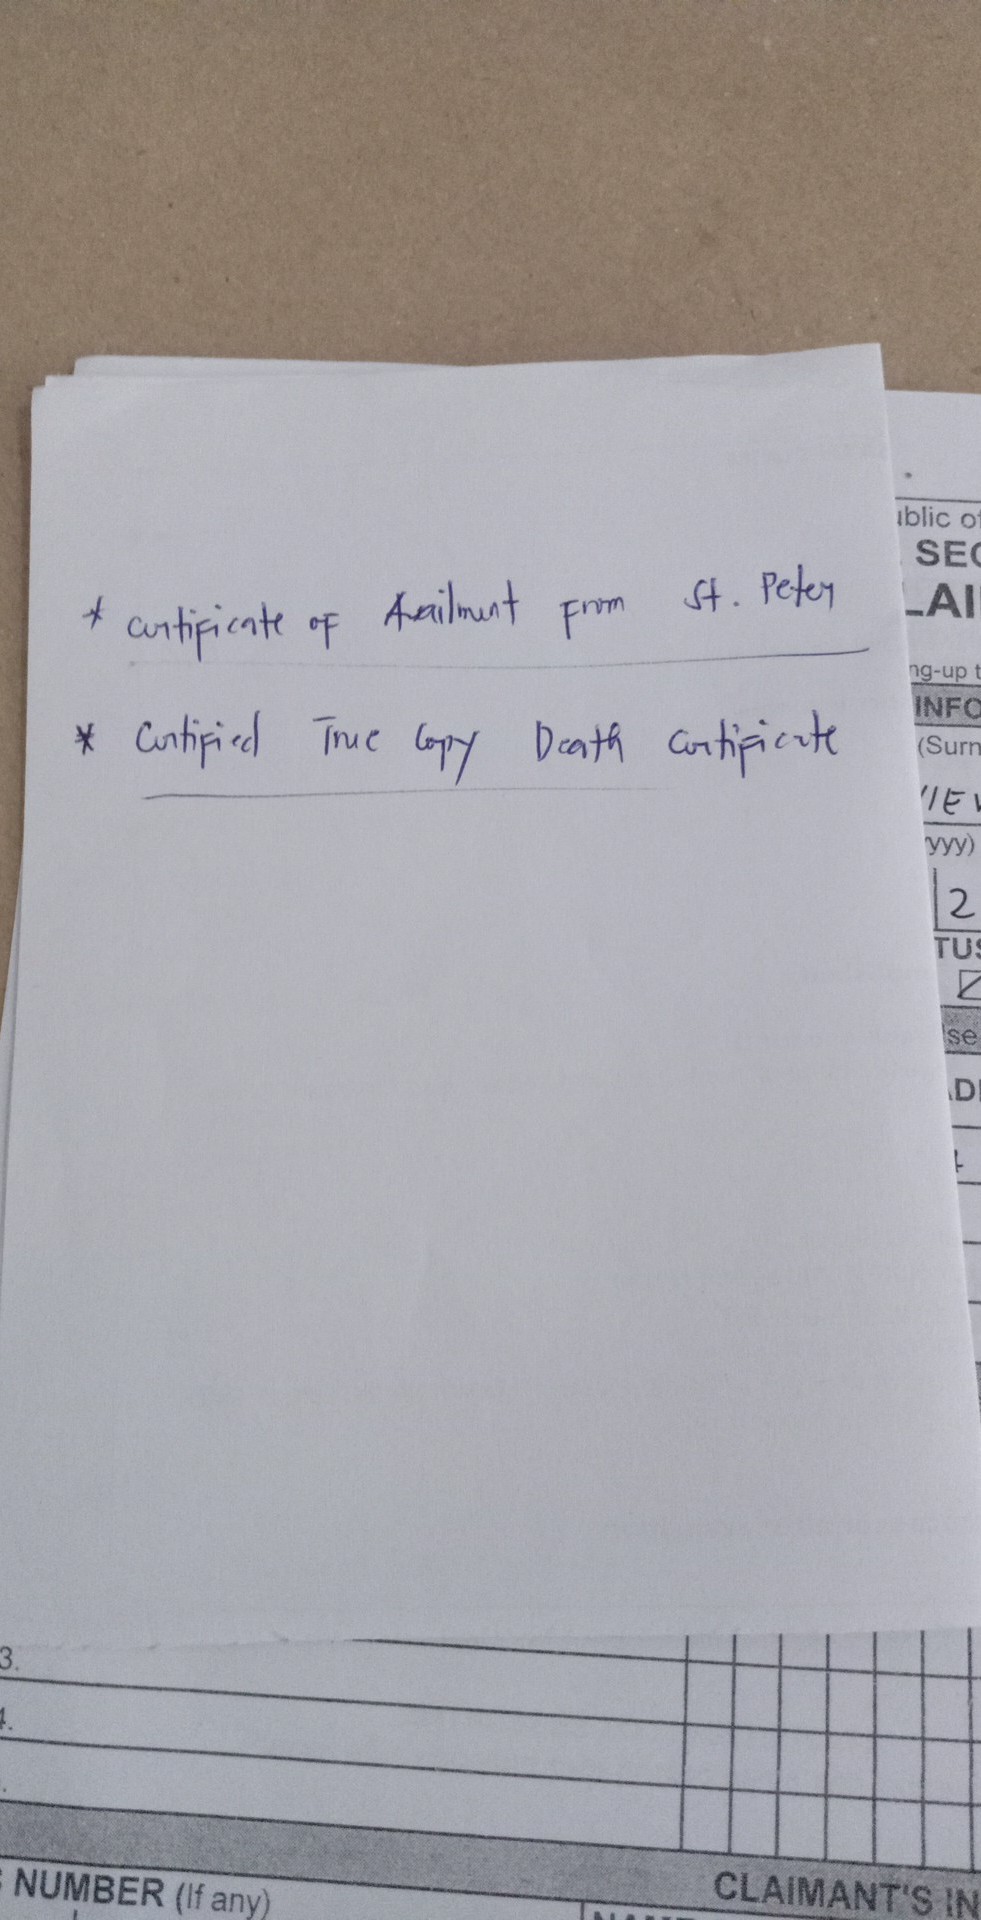 * Certificate of Availment From St. Peter
* Certified True Copy Death Certificate
ublic of
SEC
LAI
ng-up t
INFO
(Surn
VIEV
yyy)
2
TUS
se
AD
3.
4.
NUMBER (If any)
CLAIMANT'S IN